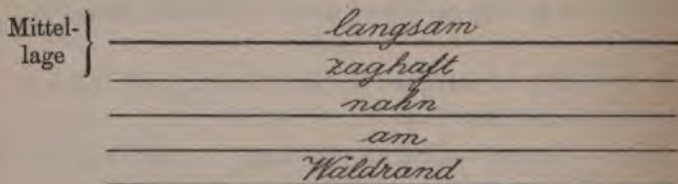 Mittel-
lage
langsam
zaghaft
nahn
am
Waldrand